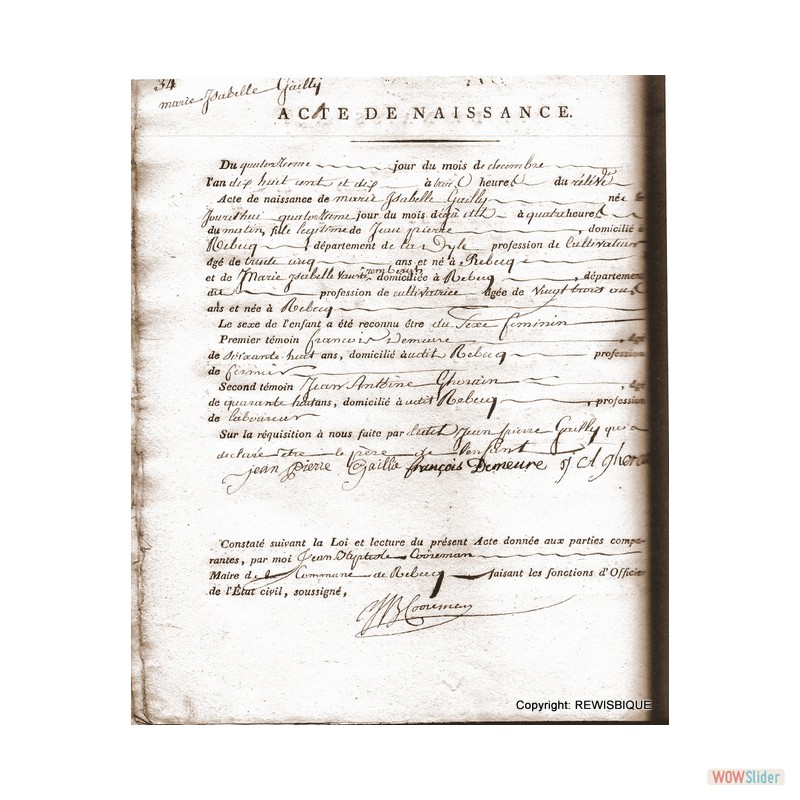 34
marie Isabelle Gailly
ACTE DE NAISSANCE.
Du quatorzieme jour du mois de decembre
l'an dix huit cent et dix à trois heures du rélévé
Acte de naissance de marie Isabelle Gailly née le
Jourdhui quatorzieme jour du mois déjà dit à quatre heures
du matin, fille legitime de Jean pierre , domicilié à
Rebecq , département de la Dyle profession de Cultivateur
âgé de trente cinq ans et né à Rebecq
et de Marie Isabelle domiciliée à Rebecq , département
dit profession de cultivatrice âgée de vingt trois ans
ans et née à Rebecq
Le sexe de l'enfant a été reconnu être du sexe feminin
Premier témoin francois Demeure , âgé
de soixante huit ans, domicilié àudit Rebecq profession
de fermier
Second témoin Jean Antoine , âgé
de quarante huit ans, domicilié àudit Rebecq , profession
de laboureur
Sur la réquisition à nous faite par ledit Jean pierre Gailly qui a
declaré être le père de l'enfant
jean pierre Gaillie françois Demeure
Constaté suivant la Loi et lecture du présent Acte donnée aux parties compa-
rantes, par moi Jean Bptiste Cooreman
Maire de la Commune de Rebecq faisant les fonctions d'Officier
de l'État civil, soussigné,
JB Cooreman
Copyright: REWISBIQUE
WOWSlider